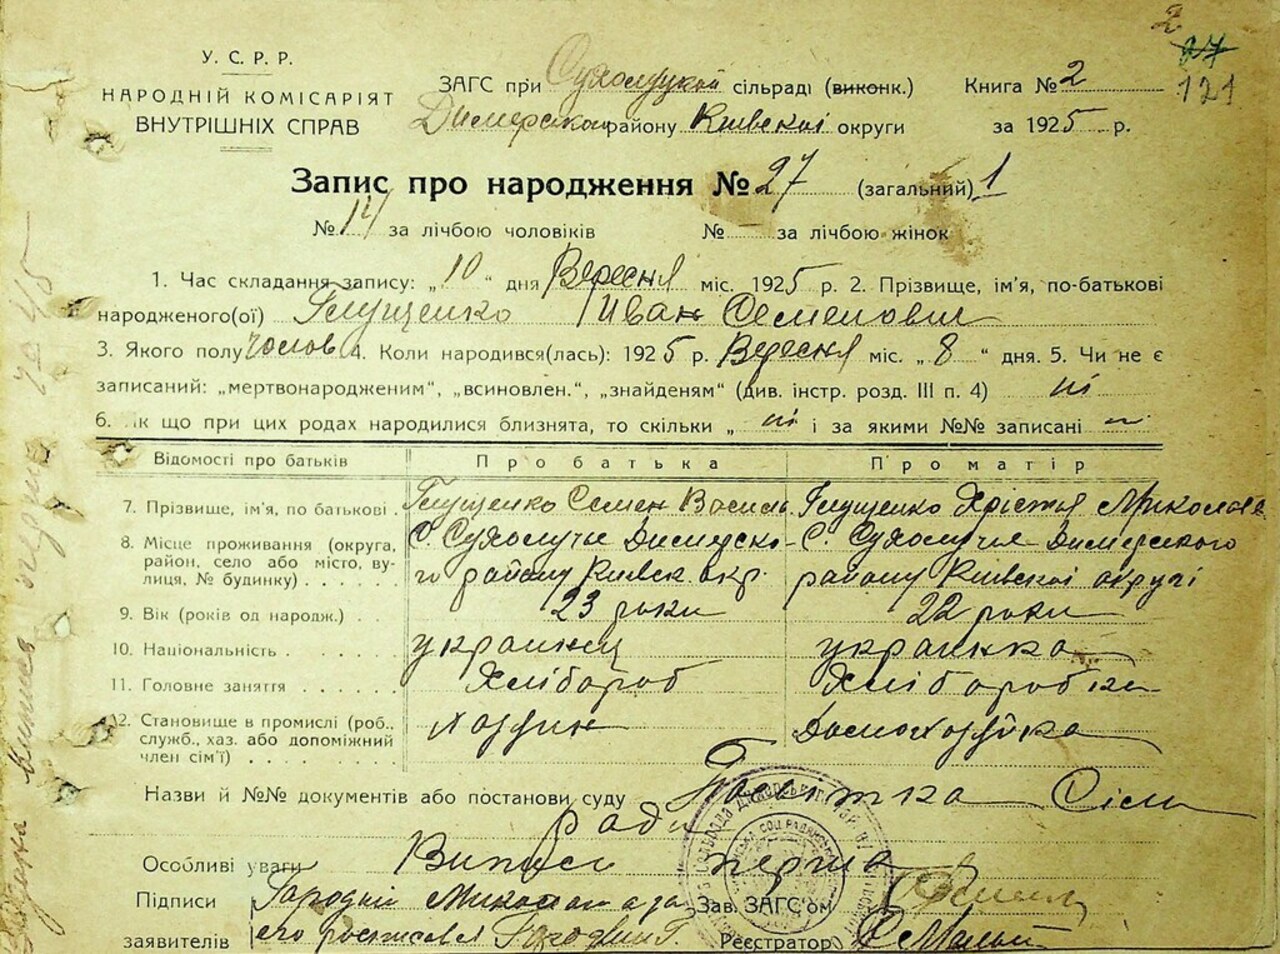 2
27
121
У. С. Р. Р.
НАРОДНІЙ КОМІСАРІЯТ
ВНУТРІШНІХ СПРАВ
ЗАГС при Сухолуцкой сільраді (виконк.) Книга № 2
Димерского району Киевскоі округи за 1925 р.
Запис про народження № 27 (загальний) 1
№ 14 за лічбою чоловіків № за лічбою жінок
1. Час складання запису: „10“ дня Вересня міс. 1925 р. 2. Прізвище, ім'я, по-батькові
народженого(ої) Глущенко Иван Семенович
3. Якого полу чолов 4. Коли народився(лась): 1925 р. Вересня міс. „8“ дня. 5. Чи не є
записаний: „мертвонародженим“, „всиновлен.“, „знайденям“ (див. інстр. розд. III п. 4) ні
6. Як що при цих родах народилися близнята, то скільки „ ні і за якими №№ записані
Відомості про батьків Про батька Про матір
7. Прізвище, ім'я, по батькові . Глущенко Семен Василь. Глущенко Хрістья Миколаев
8. Місце проживання (округа, район, село або місто, вулиця, № будинку) . . . . . . С. Сухолучье Димерского району Киевск. окр. С. Сухолучья Димерского району Киевскоі округі
9. Вік (років од народж.) . . 23 роки 22 роки
10. Національність . . . . . . украинец украинка
11. Головне заняття . . . . . . Хлібороб Хліборобка
12. Становище в промислі (роб., служб., хаз. або допоміжний член сім'ї) . . . . . . . Хозяин Домохозяйка
Назви й №№ документів або постанови суду Посвітка Сіль
ради
Особливі уваги Випись перша
Підписи Городній Микола а за Зав. ЗАГС'ом
заявителів его росписався Городній Г. Реєстратор
Видана випись перша